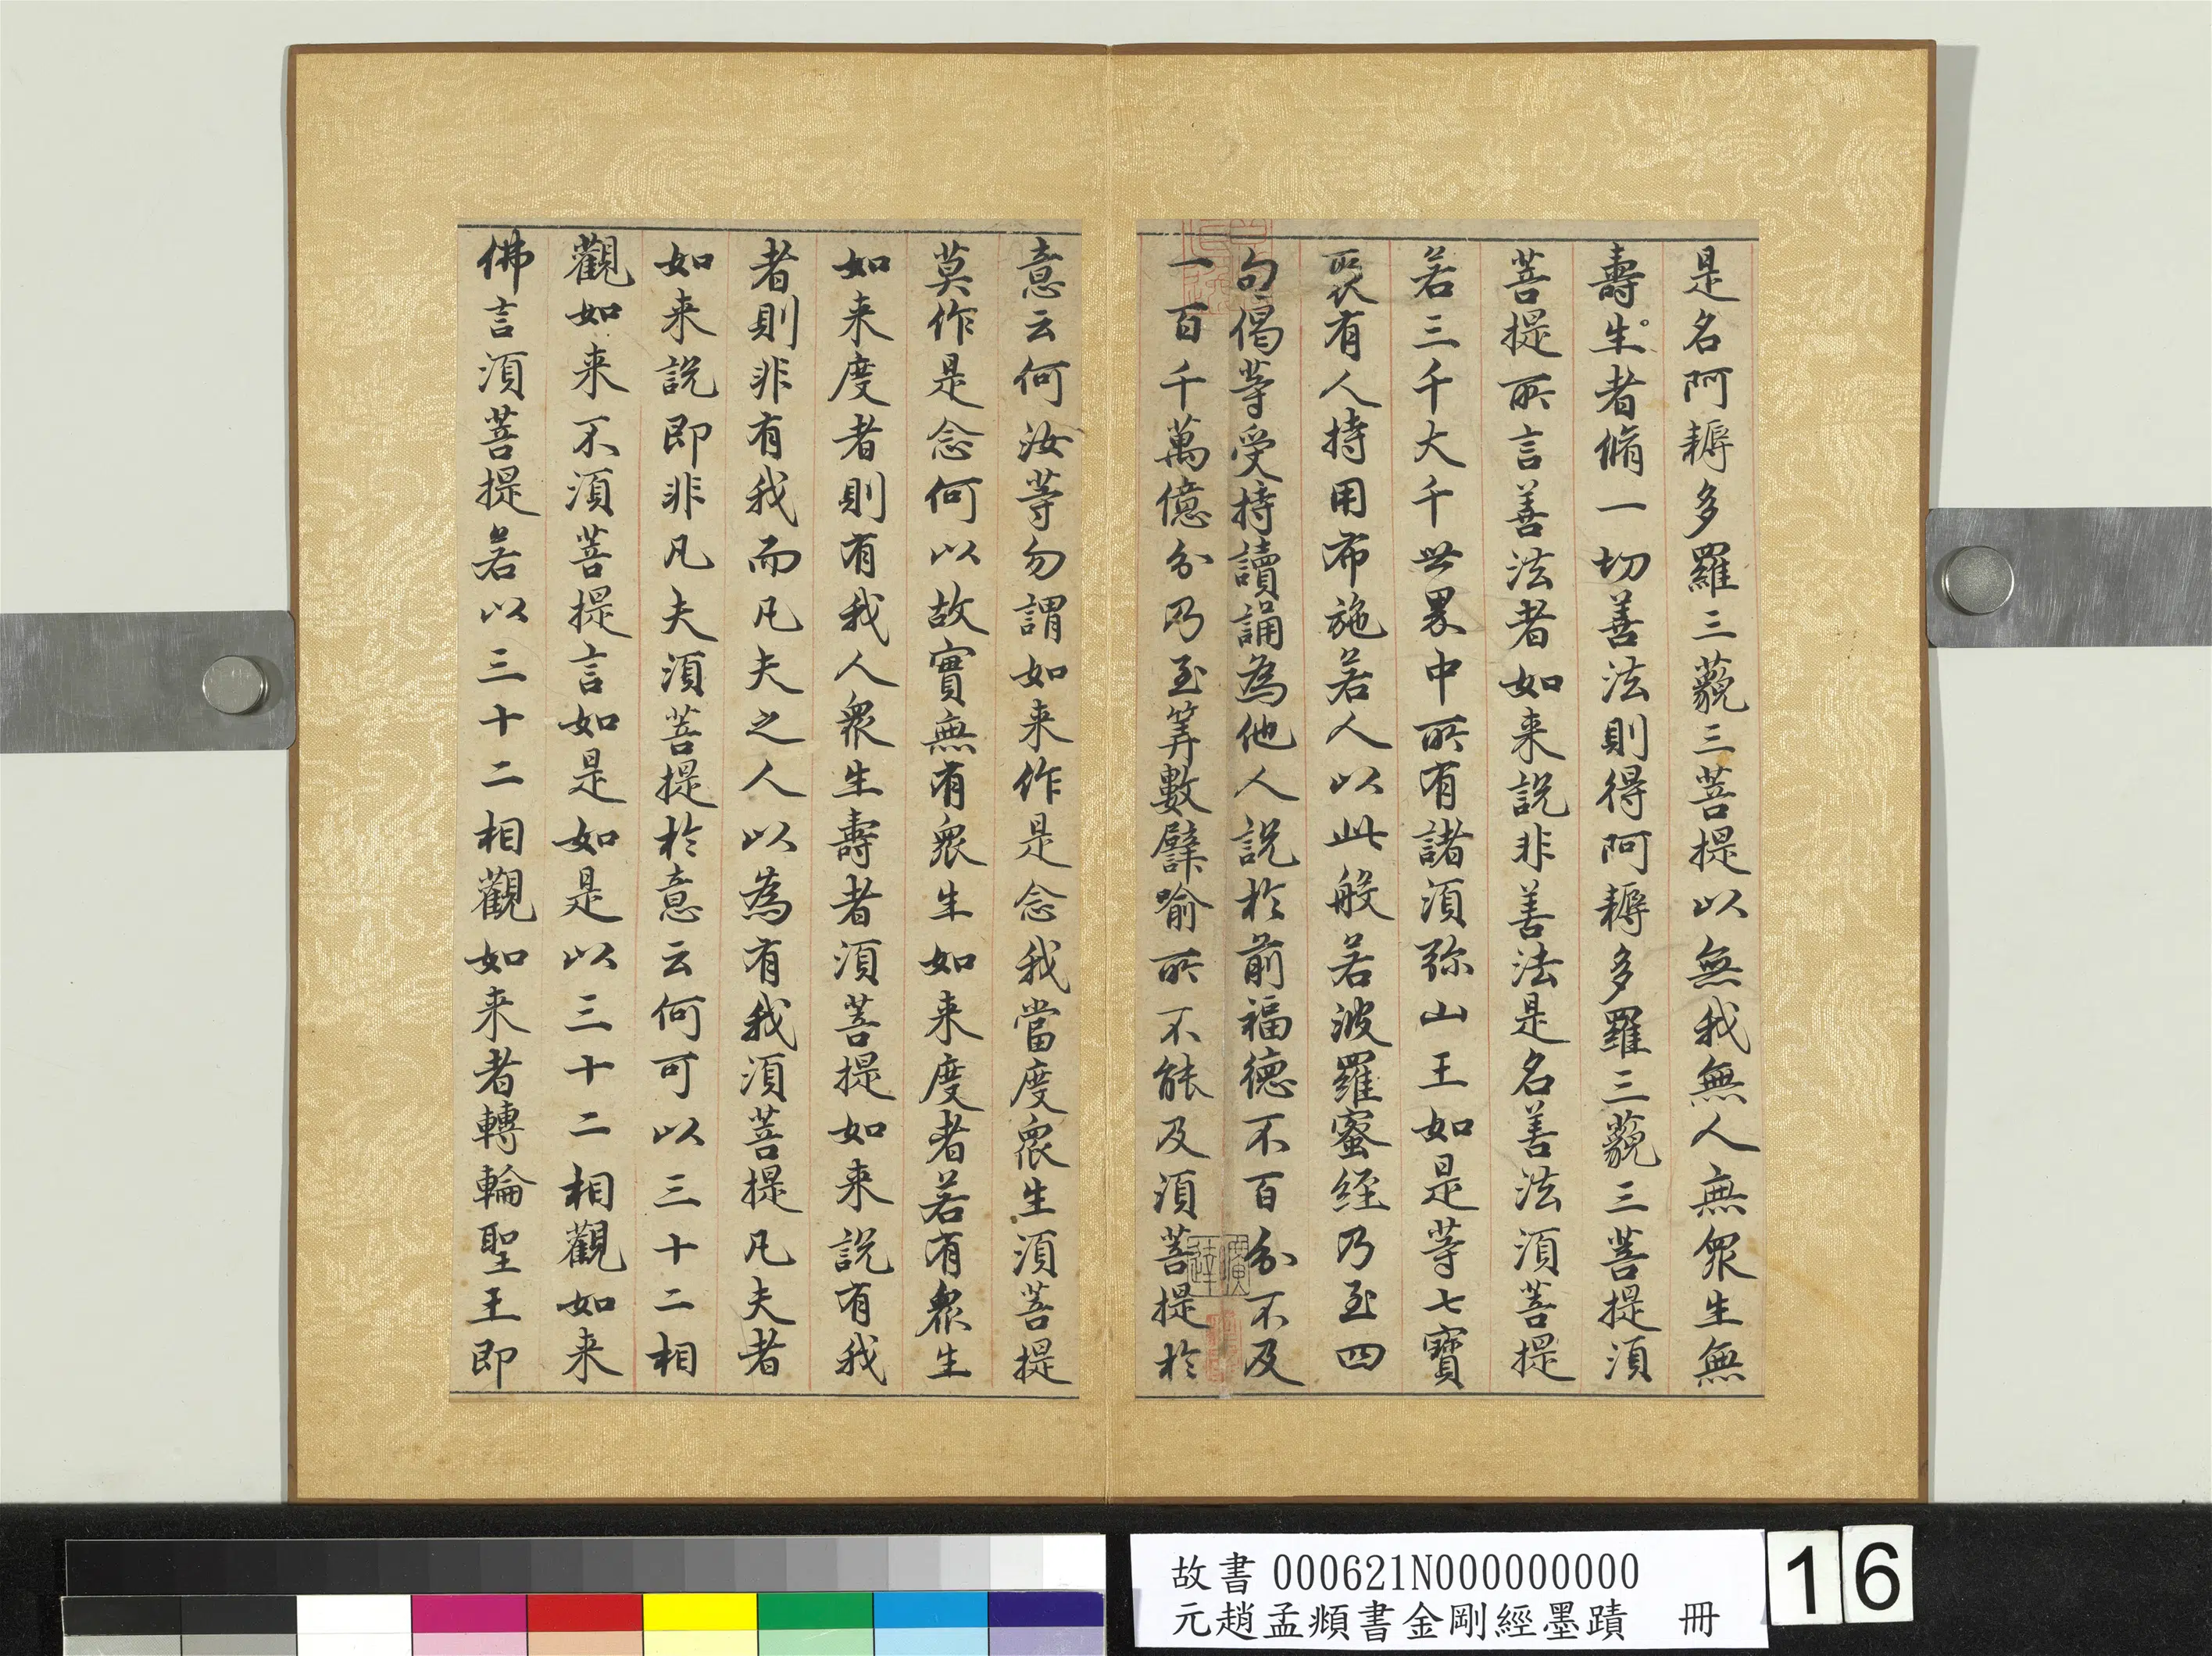 是名阿耨多羅三藐三菩提以無我無人無衆生無
壽生者脩一切善法則得阿耨多羅三藐三菩提須
菩提所言善法者如來說非善法是名善法須菩提
若三千大千世界中所有諸須弥山王如是等七寶
聚有人持用布施若人以此般若波羅蜜經乃至四
句偈等受持讀誦為他人說於前福德不百分不及
一百千萬億分乃至筭數譬喻所不能及須菩提於
意云何汝等勿謂如来作是念我當度眾生須菩提
莫作是念何以故實無有衆生如来度者若有衆生
如来度者則有我人衆生壽者須菩提如来說有我
者則非有我而凡夫之人以為有我須菩提凡夫者
如来說即非凡夫須菩提於意云何可以三十二相
觀如来不須菩提言如是如是以三十二相觀如来
佛言須菩提若以三十二相觀如来者轉輪聖王即
故書 000621N000000000
元趙孟頫書金剛經墨蹟 冊
16